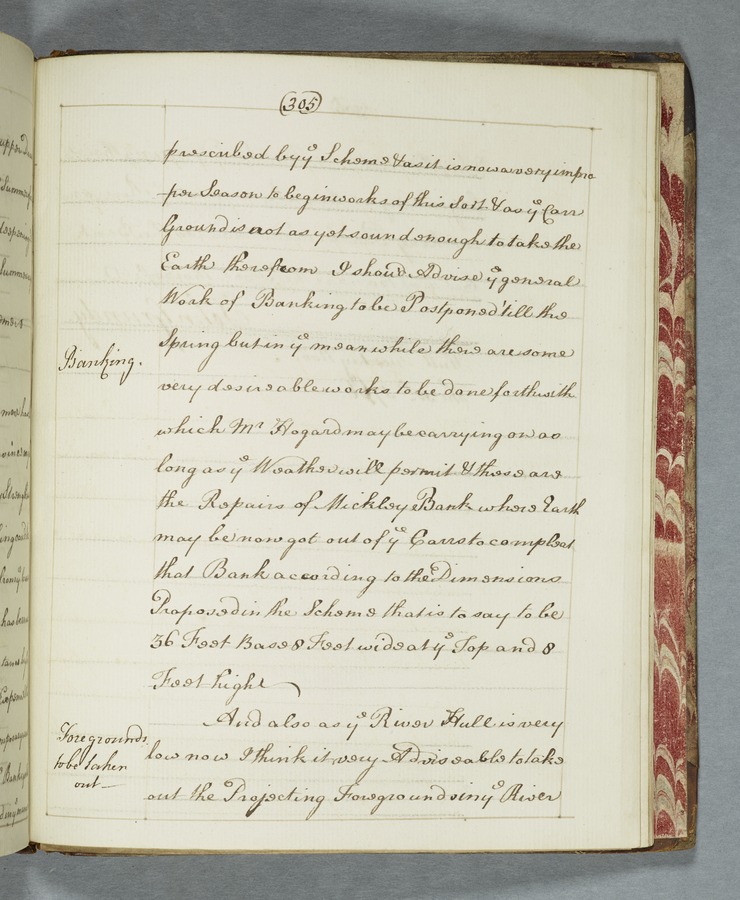 305
prescribed by yᵉ Scheme & as it is now a very impro
per Season to begin works of this Sort & as yᵉ Carr
Ground is not as yet sound enough to take the
Earth therefrom I should Advise yᵉ general
Work of Banking to be Postponed 'till the
Banking.
Spring but in yᵉ mean while there are some
very desireable works to be done forthwith
which Mr Hogard may be carrying on as
long as yᵉ Weather will permit & these are
the Repairs of Mickley Bank where Earth
may be now got out of yᵉ Carrs to compleat
that Bank according to the Dimensions
Proposed in the Scheme that is to say to be
36 Feet Base 8 Feet wide at yᵉ Top and 8
Feet high
Foregrounds
to be taken
out
And also as yᵉ River Hull is very
low now I think it very Adviseable to take
out the Projecting Foregrounds in yᵉ River